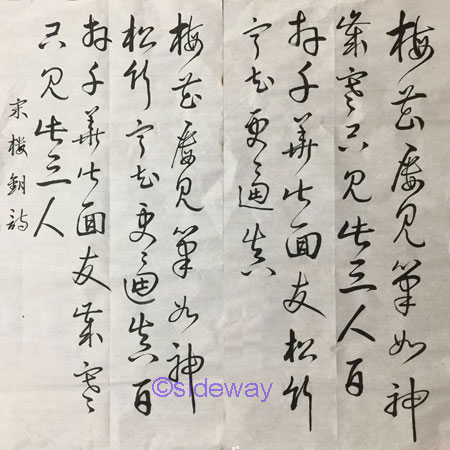 梅花屢見筆如神
歲寒只見此三人百
卉千華皆面友松竹
寧知更逼真
梅花屢見筆如神
松竹寧知更逼真百
卉千華皆面友歲寒
只見此三人
宋樓鑰詩
©sideway